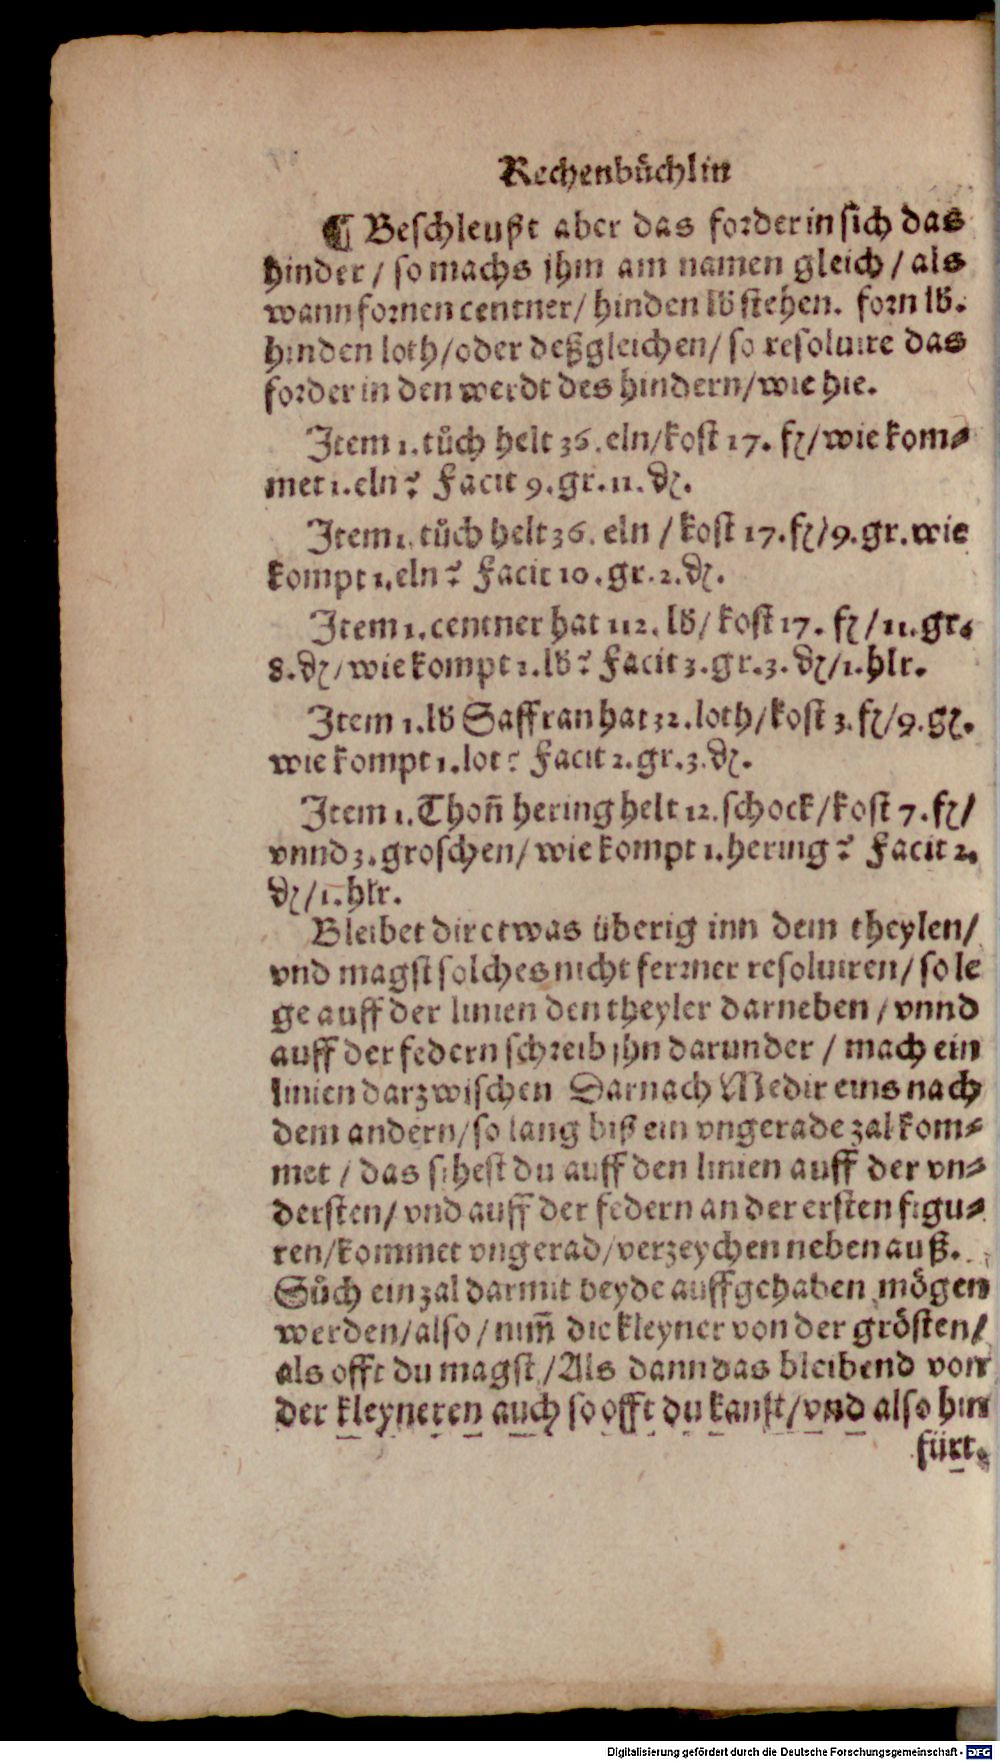 Rechenbuͤchlin
¶ Beschleußt aber das forder in sich das
hinder / so machs jhm am namen gleich / als
wann fornen centner / hinden lb stehen. forn lb.
hinden loth / oder deßgleichen / so resoluire das
forder in den werdt des hindern / wie hie.
Item 1. tuͦch helt 36. eln / kost 17. fl / wie kom⸗
met 1. eln? Facit 9. gr. 11. ₰.
Item 1. tuͦch helt 36. eln / kost 17. fl / 9. gr. wie
kompt 1. eln? Facit 10. gr. 2. ₰.
Item 1. centner hat 112. lb / kost 17. fl / 11. gr.
8. ₰ / wie kompt 1. lb? Facit 3. gr. 3. ₰ / 1. hlr.
Item 1. lb Saffran hat 32. loth / kost 3. fl / 9. gl.
wie kompt 1. lot? Facit 2. gr. 3. ₰.
Item 1. Thoñ hering helt 12. schock / kost 7. fl /
vnnd 3. groschen / wie kompt 1. hering? Facit 2.
₰ / 1. hlr.
Bleibet dir etwas überig inn dem theylen /
vnd magst solches nicht ferrner resoluiren / so le
ge auff der linien den theyler darneben / vnnd
auff der federn schreib jhn darunder / mach ein
linien darzwischen Darnach Medir eins nach
dem andern / so lang biß ein vngerade zal kom⸗
met / das sihest du auff den linien auff der vn⸗
dersten / vnd auff der federn an der ersten figu⸗
ren / kommet vngerad / verzeychen neben auß.
Suͦch ein zal darmit beyde auffgehaben moͤgen
werden / also / nim̃ die kleyner von der groͤsten /
als offt du magst / Als dann das bleibend von
der kleyneren auch so offt du kanst / vnd also hin
fürt.
Digitalisierung gefördert durch die Deutsche Forschungsgemeinschaft - DFG